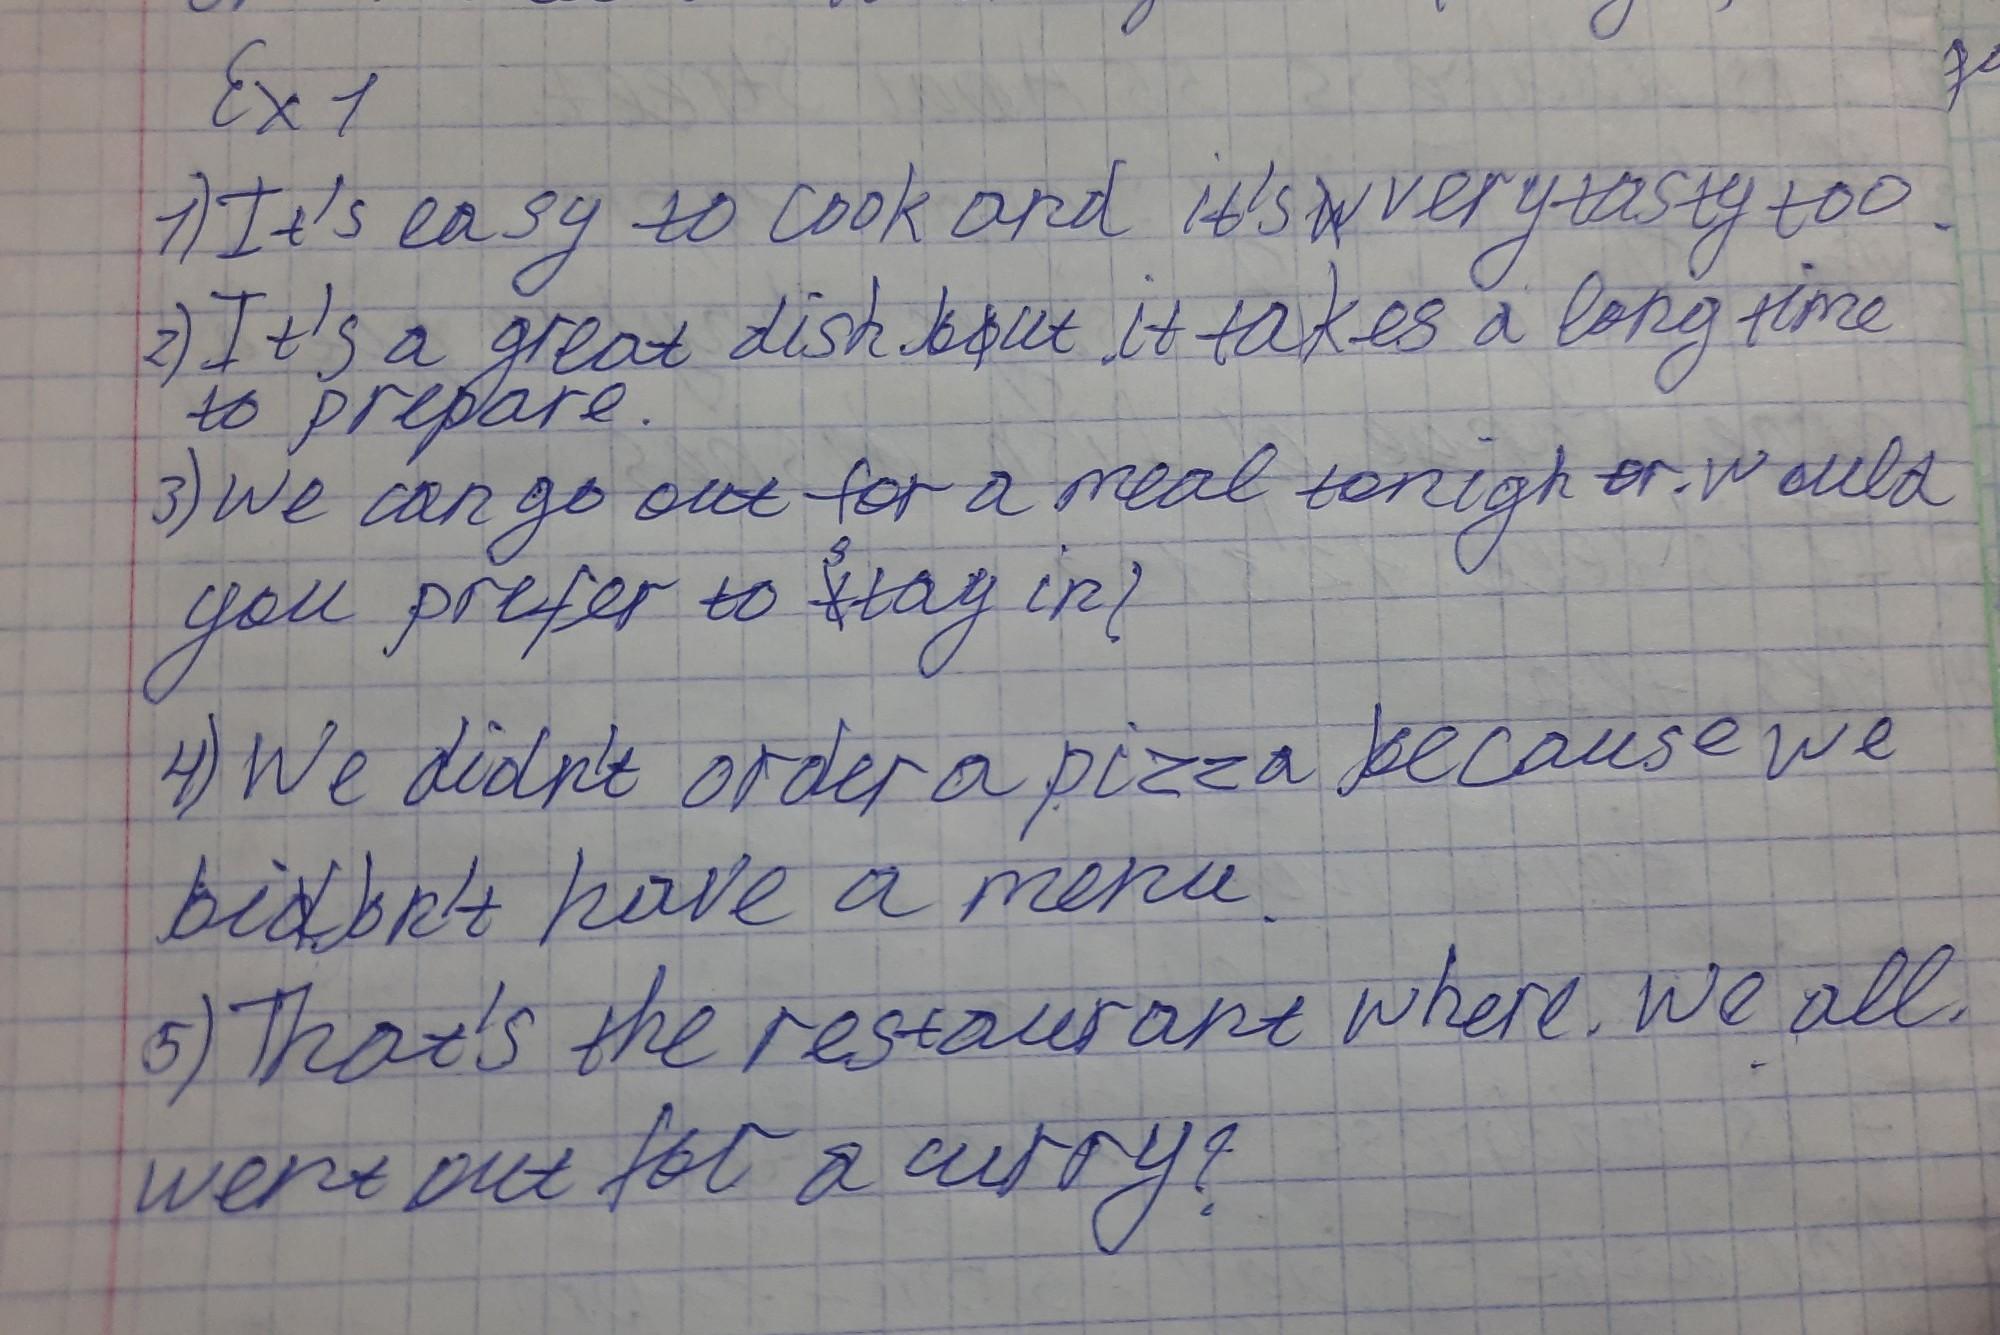 Ex 1
1) It's easy to cook and it's very tasty too.
2) It's a great dish but it takes a long time
to prepare.
3) We can go out for a meal tonigh or would
you prefer to stay in?
4) We didn't order a pizza because we
bidn't have a menu.
5) That's the restaurant where. We all.
went out for a curry?